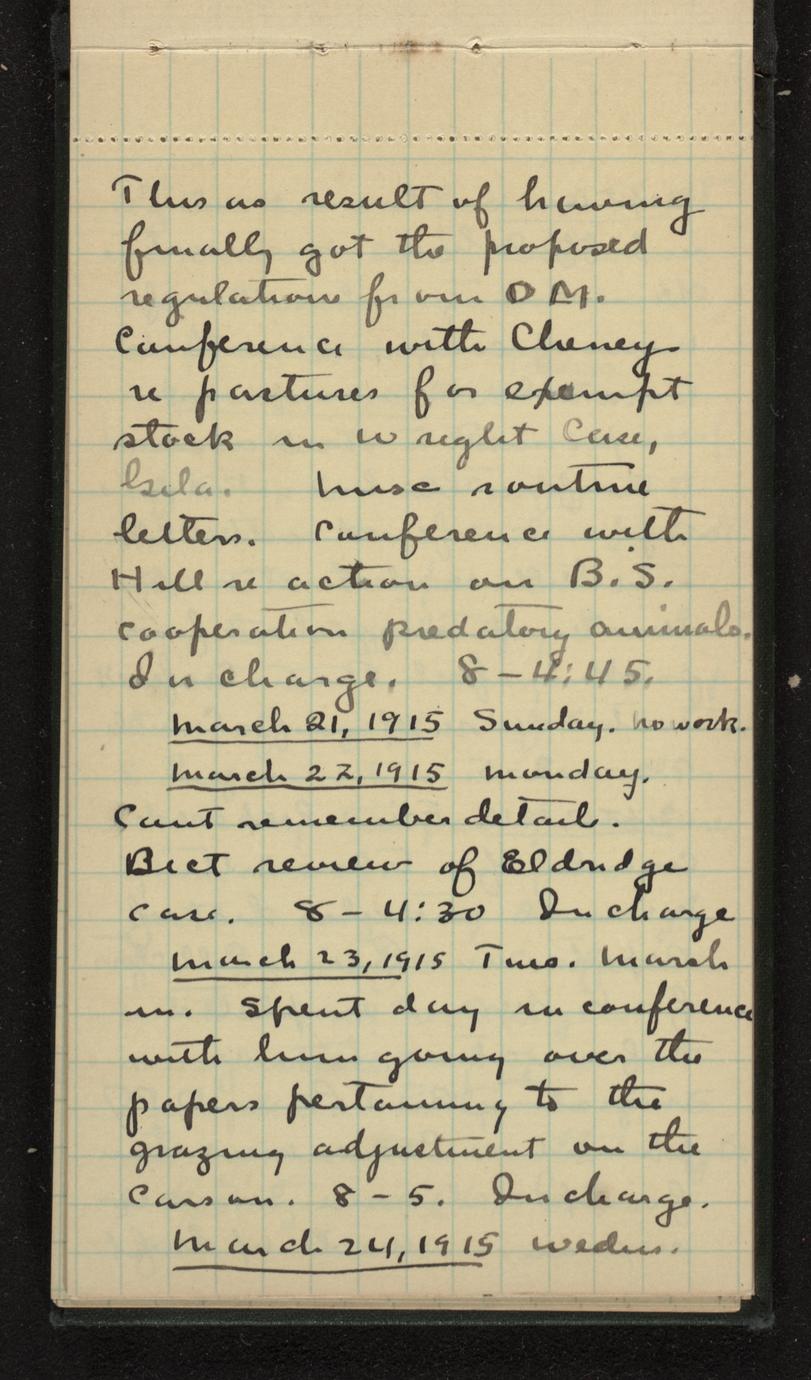 This as result of having
finally got the proposed
regulations from DM.
Conference with Cheney
re pastures for exempt
stock in Wright Case,
Gila. Misc routine
letters. Conference with
Hill re action on B.S.
cooperation predatory animals.
In charge. 8-4:45.
March 21, 1915 Sunday. No work.
March 22, 1915 Monday.
Cant remember detail.
Bict review of Eldridge
case. 8-4:30 In charge
March 23, 1915 Tues. Marsh
in. Spent day in conference
with him going over the
papers pertaining to the
grazing adjustment on the
Carson. 8-5. In charge.
March 24, 1915 Wednes.